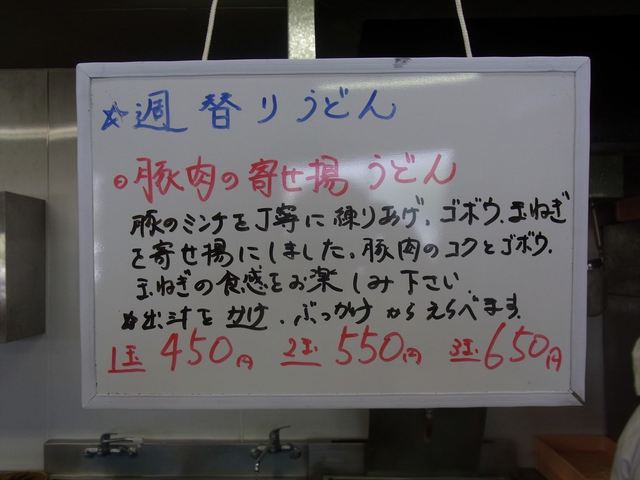 ☆週替りうどん
◎豚肉の寄せ揚うどん
豚のミンチを丁寧に練りあげ、ゴボウ、玉ねぎ
を寄せ揚にしました。豚肉のコクとゴボウ、
玉ねぎの食感をお楽しみ下さい。
☆出汁をかけ、ぶっかけからえらべます。
1玉 450円 2玉 550円 3玉 650円